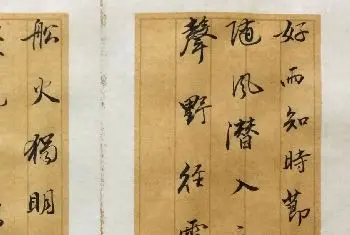 好雨知時節
随風潜入
聲野径雲
船火獨明